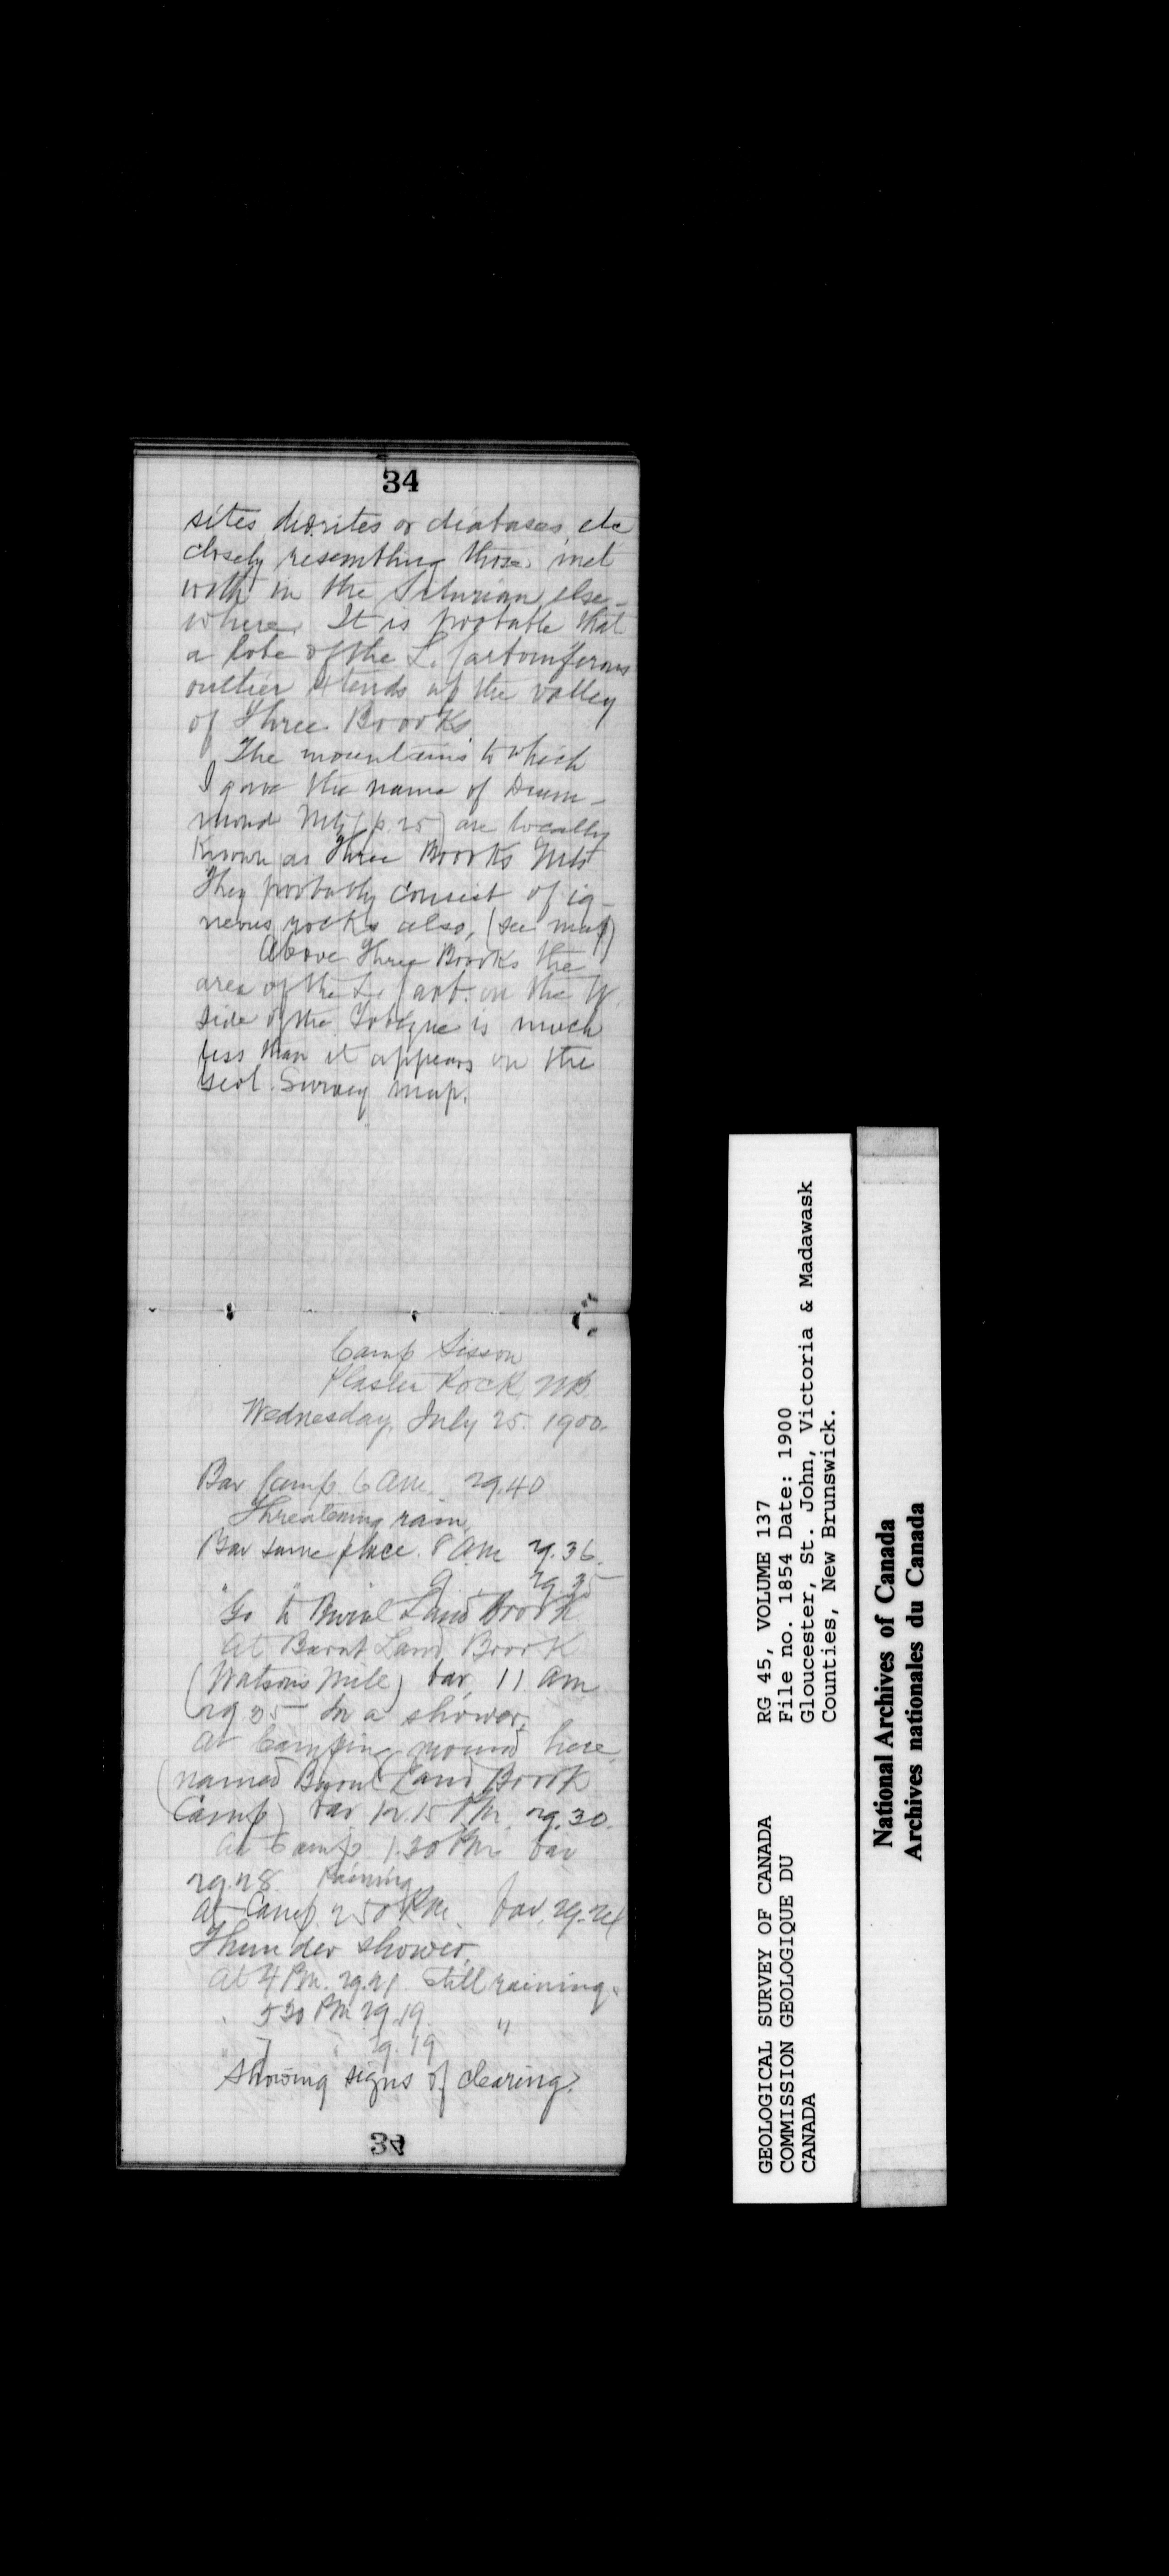 34
sites, diorites or diabases, etc
closely resembling those met
with in the Silurian else-
where. It is probable that
a lobe of the L. Carboniferous
outlier xtends up the valley
of Three Brooks.
The mountains to which
I gave the name of Drum-
mond Mts (p. 25) are locally
known as Three Brooks Mts
They probably consist of ig-
neous rocks also, (see map)
Above Three Brooks the
area of the L. Carb. on the W.
side of the Tobique is much
less than it appears on the
Geol. Survey map.
Camp Sisson
Plaster Rock, NB
Wednesday, July 25. 1900.
Bar Camp. 6 am. 29.40
Threatening rain.
Bar same place. 8 am 29.36.
" " 9 " 29.35
Go to Burnt Land Brook
At Burnt Land Brook
(Watson's Mile) bar. 11 am
29.35 In a shower.
At Camping ground here,
(named Burnt Land Brook
Camp) bar 12.15 Pm. 29.30.
At Camp 1.30 Pm bar
29.28. Raining
At Camp. 2 50 Pm. bar. 29.24
Thunder shower.
At 4 Pm. 29.21. Still raining.
" 5 30 Pm 29.19. "
" 7 " 29.19
Showing signs of clearing.
34
GEOLOGICAL SURVEY OF CANADA
COMMISSION GEOLOGIQUE DU
CANADA
RG 45, VOLUME 137
File no. 1854 Date: 1900
Gloucester, St. John, Victoria & Madawask
Counties, New Brunswick.
National Archives of Canada
Archives nationales du Canada